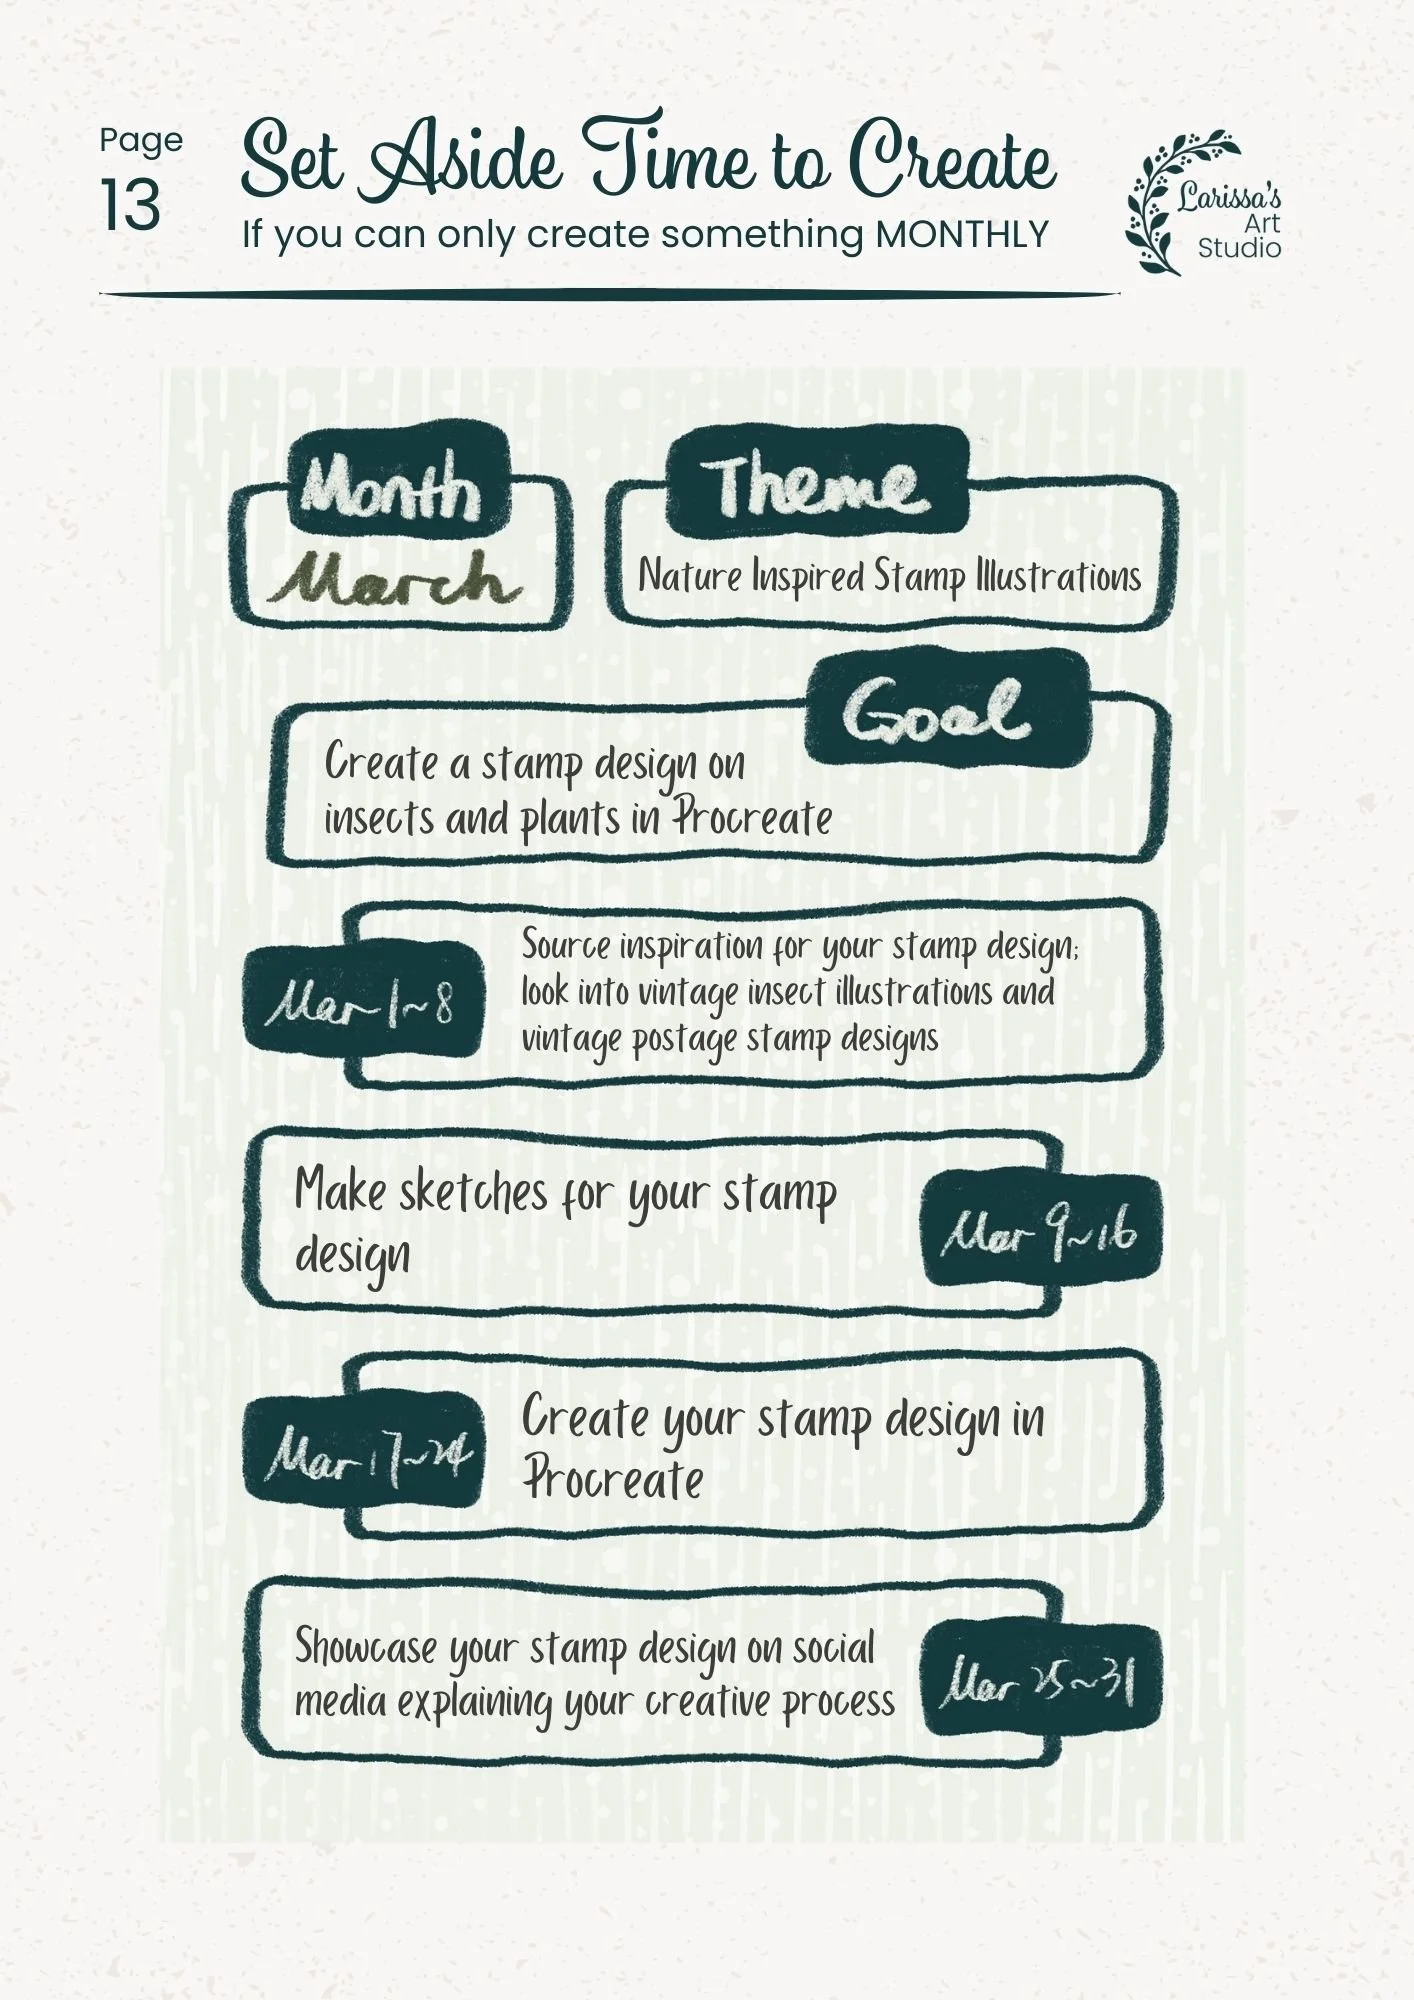 Page
13
Set Aside Time to Create
If you can only create something MONTHLY
Larissa's
Art
Studio
Month
March
Theme
Nature Inspired Stamp Illustrations
Goal
Create a stamp design on
insects and plants in Procreate
Mar 1~8
Source inspiration for your stamp design;
look into vintage insect illustrations and
vintage postage stamp designs
Make sketches for your stamp
design
Mar 9~16
Mar 17~24
Create your stamp design in
Procreate
Showcase your stamp design on social
media explaining your creative process
Mar 25~31